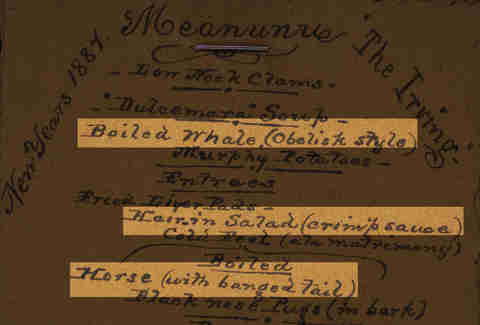 Meanunu
New Years 1887.
"The Irving."
- Low Neck Clams -
- "Dulcemara" Soup -
Boiled Whale (Obelisk style)
Murphy Potatoes -
Entrees
Fried Liver Pads -
Hair in Salad (crimp sauce)
Cold Feet (a la matremony)
Boiled
Horse (with banged tail)
Black nose Pugs (in bark)